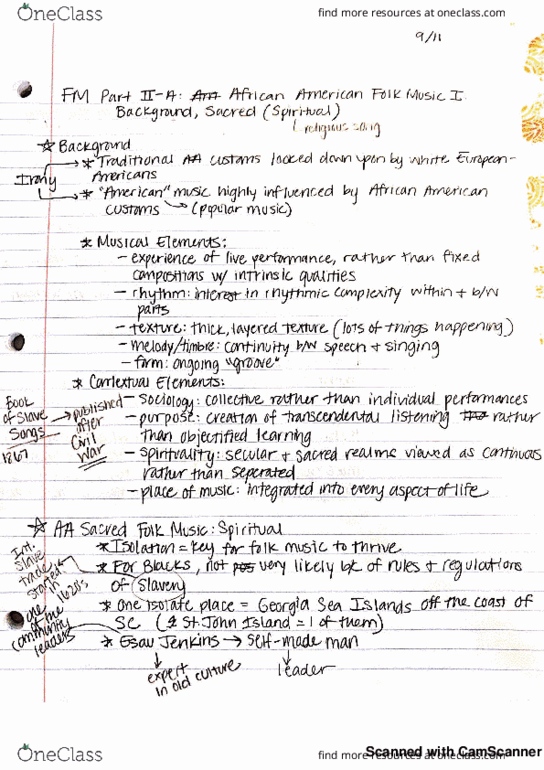 OneClass
find more resources at oneclass.com
9/11
FM Part II-A: African American Folk Music I.
Background, Sacred (Spiritual)
religious song
Background
* Traditional AA customs looked down upon by white European-
Americans
Irony
* "American" music highly influenced by African American
customs → (popular music)
* Musical Elements:
- experience of live performance, rather than fixed
compositions w/ intrinsic qualities
- rhythm: interest in rhythmic complexity within + b/w
parts
- texture: thick, layered texture (lots of things happening)
- melody/timbre: continuity b/w speech + singing
- form: ongoing "groove"
* Contextual Elements:
- sociology: collective rather than individual performances
- purpose: creation of transcendental listening rather
than objectified learning
- Spirituality: secular + sacred realms viewed as continuous
rather than seperated
- place of music: integrated into every aspect of life
Book
of Slave
Songs
1867
→ published
after
Civil
War
AA Sacred Folk Music: Spiritual
* Isolation = key for folk music to thrive
* For Blacks, not very likely bc of rules + regulations
of Slavery
* One isolate place = Georgia Sea Islands off the coast of
SC (St. John Island = 1 of them)
* Esau Jenkins → self-made man
expert
in old culture
leader
Int.
Slave
trade
started
in
1620's
one
of the
community
leaders
OneClass
find more resources at oneclass.com
Scanned with CamScanner